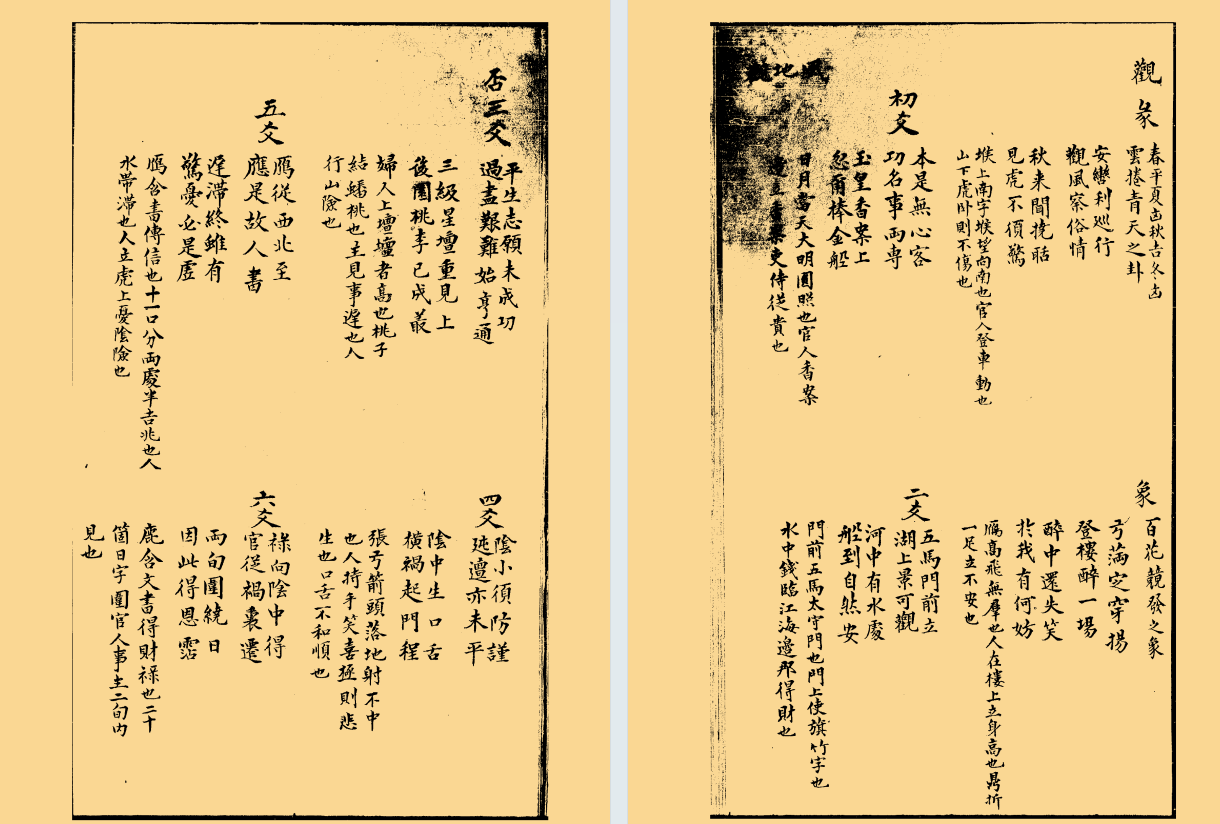 觀
彖
春平夏凶秋吉冬凶
雲捲青天之卦
安巒利巡行
觀風察俗情
秋来間挽聒
見虎不須驚
堠上南字堠望向南也官人登車動也
山下虎卧則不傷也
初爻
本是無心客
功名事両專
玉皇香案上
忽爾棒金船
日月當天大明圓照也官人香案
邊立香案吏侍從貴也
地
象
百花競發之象
弓滿定穿揚
登樓醉一場
醉中還失笑
於我有何妨
鴈高飛無羣也人在樓上立身高也鼎折
一足立不安也
二爻
五馬門前立
湖上景可觀
河中有水處
船到自然安
門前五馬太守門也門上使旗竹字也
水中錢臨江海邊那得財也
否三爻
平生志願未成功
過盡艱難始亨通
三級星壇重見上
後園桃李已成叢
婦人上壇壇者高也桃子
結蟠桃也主見事遲也人
行山險也
四爻
陰小須防謹
迍邅亦未平
陰中生口舌
横禍起門程
張弓箭頭落地射不中
也人持手笑喜極則悲
生也口舌不和順也
五爻
鴈從西北至
應是故人書
遲滯終雖有
驚憂必是虛
鴈含書傳信也十一口分両處半吉兆也人
水帶滯也人立虎上憂陰險也
六爻
祿向陰中得
官従禍裏遷
両旬圍繞日
因此得恩霑
鹿含文書得財祿也二十
箇日字圍官人事主二旬内
見也